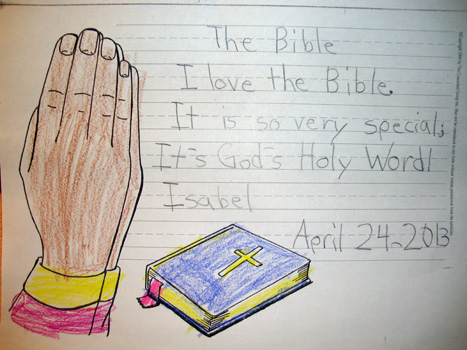 The Bible
I love the Bible.
It is so very special;
It's God's Holy Word!
Isabel
April 24-2013